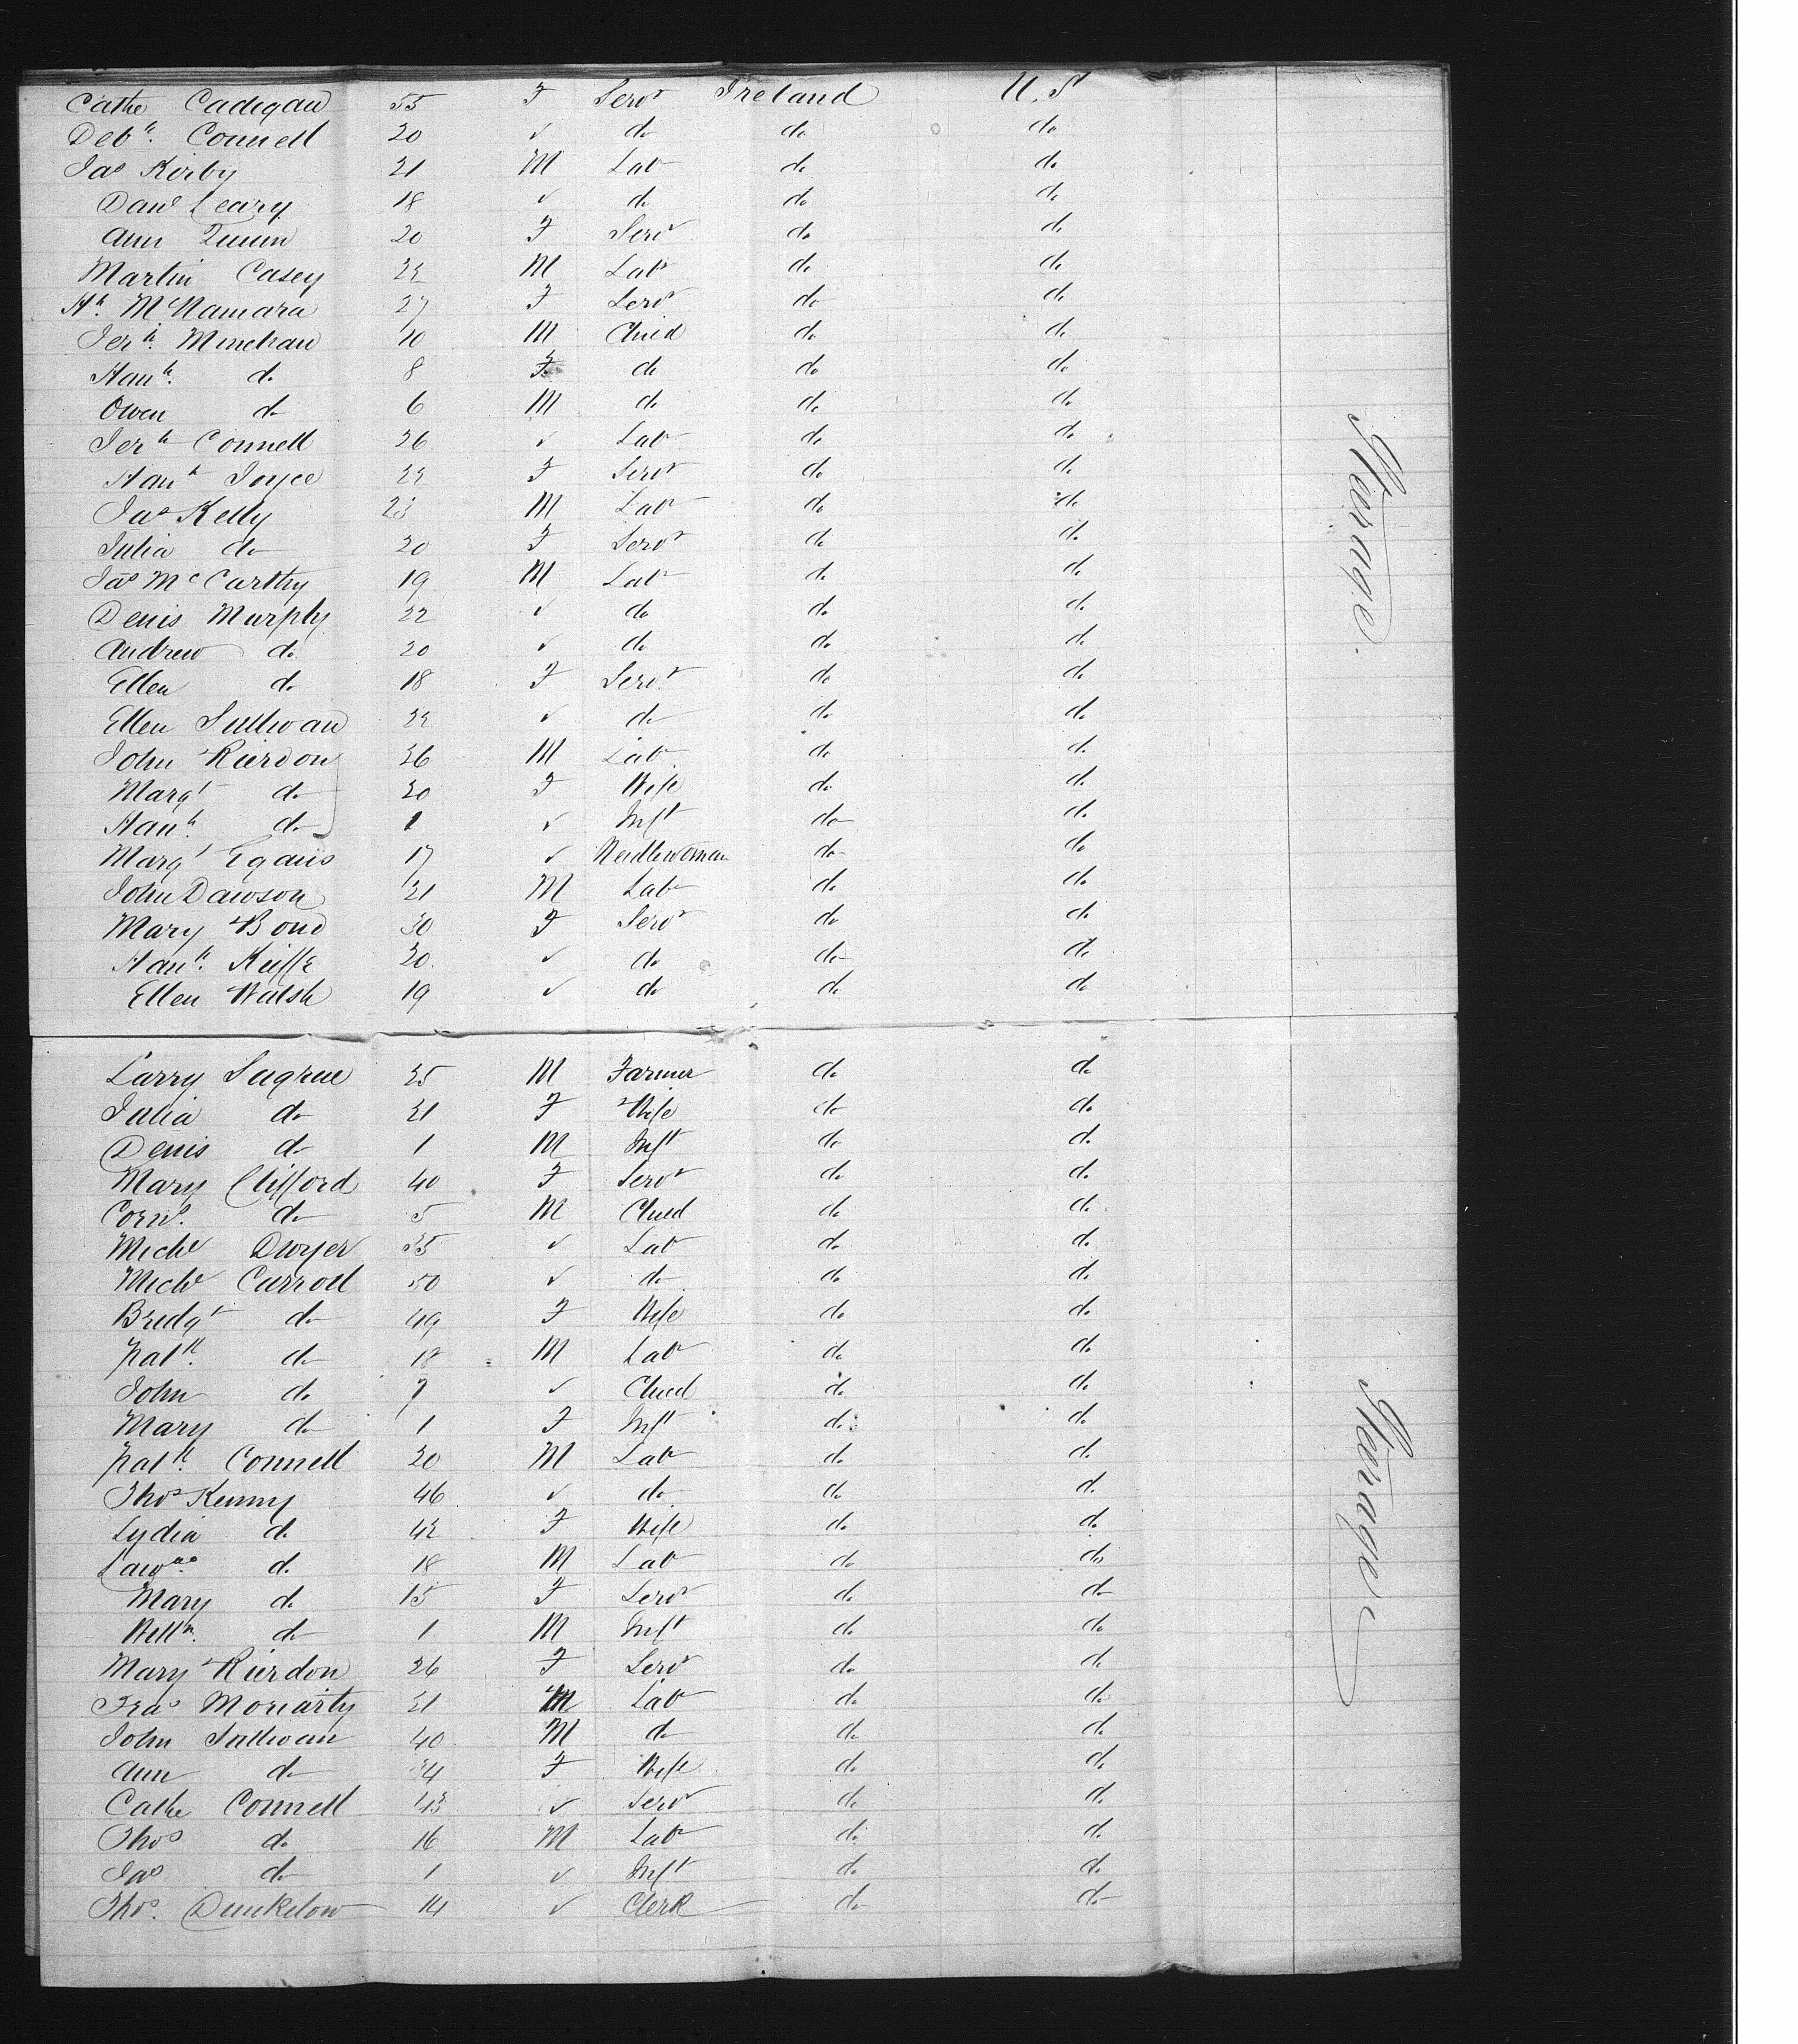 Cathe Cadigan 55 F Servt Ireland U.S
Debh. Connell 20 ✓ do do do
Jas Kirby 21 M Labr do do
Danl Leary 18 ✓ do do do
Ann Quinn 20 F Servt do do
Martin Casey 22 M Labr do do
Hh. McNamara 27 F Servt do do
Jerh. Minehan 10 M Child do do
Hanh. do 8 F do do do
Owen do 6 M do do do
Jerh Connell 26 ✓ Labr do do
Hanh Joyce 22 F Servt do do
Jas Kelly 23 M Labr do do
Julia do 20 F Servt do do
Jas McCarthy 19 M Labr do do
Denis Murphy 22 ✓ do do do
Andrew do 20 ✓ do do do
Ellen do 18 F Servt do do
Ellen Sullivan 22 ✓ do do do
John Rierdon 26 M Labr do do
Margt do 20 F Wife do do
Hanh. do 1 ✓ Inft do do
Margt Egans 17 ✓ Needlewoman do do
John Dawson 21 M Labr do do
Mary Bond 30 F Servt do do
Hanh. Keiffe 20 ✓ do do do
Ellen Walsh 19 ✓ do do do
Steerage.
Larry Sugrue 25 M Farmer do do
Julia do 21 F Wife do do
Denis do 1 M Inft do do
Mary Clifford 40 F Servt do do
Cornl. do 5 M Child do do
Michl Dwyer 35 ✓ Labr do do
Michl Carroll 50 ✓ do do do
Bridgt do 49 F Wife do do
Patk. do 18 M Labr do do
John do 7 ✓ Child do do
Mary do 1 F Inft do do
Patk. Connell 20 M Labr do do
Thos Kenny 46 ✓ do do do
Lydia do 42 F Wife do do
Lawce. do 18 M Labr do do
Mary do 15 F Servt do do
Willm. do 1 M Inft do do
Mary Rierdon 26 F Servt do do
Fras Moriarty 21 M Labr do do
John Sullivan 40 M do do do
Ann do 34 F Wife do do
Cathe Connell 43 ✓ Servt do do
Thos do 16 M Labr do do
Jas do 1 ✓ Inft do do
Thos. Dunkelow 14 ✓ Clerk do do
Steerage